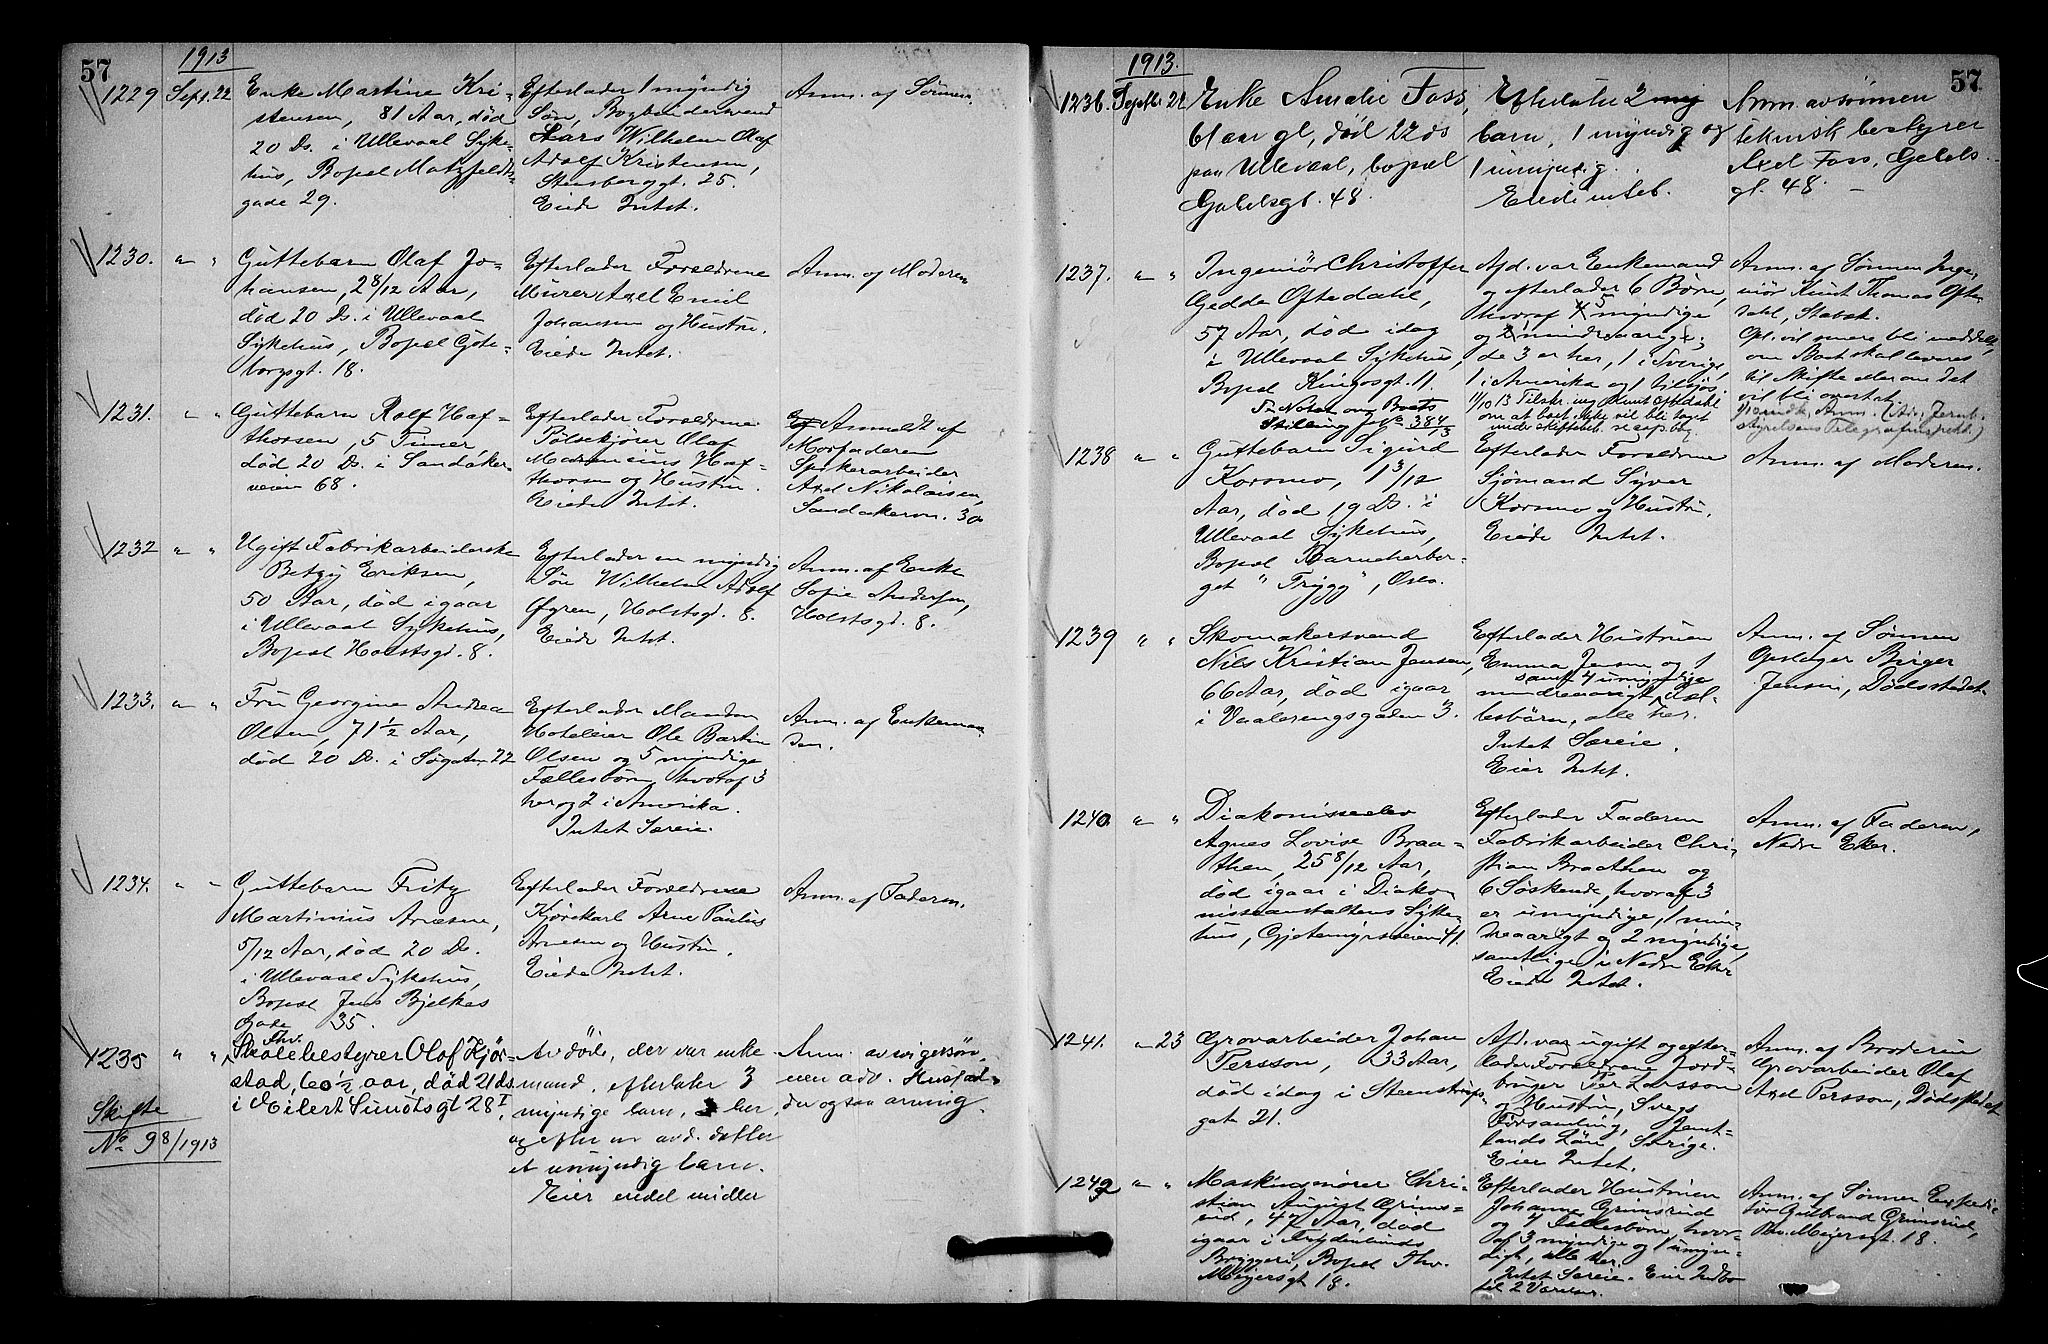 57
1913
1229
Sept. 22
Enke Martine Kri-
stensen, 81 Aar, død
20 Ds. i Ullevaal Syke-
hus, Bopæl Motzfeldts-
gade 29.
Efterlader 1 myndig
Søn, Bogbindersvend
Lars Wilhelm Olaf
Adolf Kristensen,
Stensberggt. 25.
Eiede Intet.
Anm. af Sønnen.
1230. " "
Guttebarn Olaf Jo-
hansen, 2 8/12 Aar,
død 20 Ds. i Ullevaal
Sykehus, Bopæl Gøte-
borgsgt. 18.
Efterlader Forældrene
Murer Axel Emil
Johansen og Hustru.
Eiede Intet.
Anm. af Moderen
1231. " "
Guttebarn Rolf Haf-
thorsen, 5 Timer
død 20 Ds. i Sandaker-
veien 68.
Efterlader Forældrene
Pølsekjører Olaf
Marensius Haf-
thorsen og Hustru.
Eiede Intet.
Anmeldt af
Morfaderen
Spikerarbeider
Axel Nikolaisen,
Sandakervn. 30
1232 " "
Ugift Fabrikarbeiderske
Betzy Eriksen,
50 Aar, død igaar
i Ullevaal Sykehus,
Bopæl Holstsgd. 8.
Efterlader en myndig
Søn Wilhelm Adolf
Øgren, Holstsgd. 8.
Eiede Intet.
Anm. af Enke
Sofie Andersen,
Holstsgd. 8.
1233. " "
Fru Georgine Andrea
Olsen, 71 1/2 Aar,
død 20 Ds. i Søgaten 22
Efterlader Manden
Hoteleier Ole Bastin
Olsen og 5 myndige
Fællesbørn hvoraf 3
her og 2 i Amerika.
Intet Særeie.
Anm. af Enkeman-
den.
1234. " "
Guttebarn Fritz
Martinius Arnesen,
5/12 Aar, død 20 Ds.
i Ullevaal Sykehus,
Bopæl Jens Bjelkes
Gade 35.
Efterlader Forældrene
Kjørekarl Arne Paulus
Arnesen og Hustru.
Eiede Intet.
Anm. af Faderen.
1235 " "
Fhv.
Skolebestyrer Olaf Kjør-
stad, 60 1/2 aar, død 21 ds
i Eilert Sundtsgt 28 I,
Skifte
No 98/1913
Avdøde, der var enke-
mand, efterlater 3
myndige barn, her,
og efter en avd. datter
et umyndig barn.
Eier endel midler
Anm. av svigersøn-
nen adv. Husfad
der ogsaa arving.
57
1913.
1236. Septbr 22
Enke Amalie Foss,
61 aar gl, død 22 ds
paa Ullevaal, bopæl
Galdsgt. 48.
Efterlater 2
barn, 1 myndig og
1 umyndig.
Eiede intet.
Anm. av sønnen
teknisk bestyrer
Axel Foss, Galds-
gt. 48. –
1237. " "
Ingeniør Christoffer
Gedde Oftedahl,
57 Aar, død idag
i Ullevaal Sykehus,
Bopæl Kingosgt. 11.
Afd. var Enkemand
og efterlader 6 Børn,
hvoraf 5 myndige
og 1 mindreaarig,
de 3 er her, 1 i Sverige,
1 i Amerika og 1 tilsjøs
Anm. af Sønnen Inge-
niør Knut Thomas Ofte-
dahl, Stabæk.
Opl. vil senere bli meddelt,
om Boet skal leveres
til Skifte eller om det
vil bli overtat.
1238 " "
Guttebarn Sigurd
Korsmo, 1 3/12
Aar, død 19 Ds. i
Ullevaal Sykehus,
Bopæl Barneherber-
get "Trygg", Oslo.
Efterlader Forældrene
Sjømand Syver
Korsmo og Hustru.
Eiede Intet.
Anm. af Moderen.
1239 " "
Skomakersvend
Nils Kristian Jensen,
66 Aar, død igaar
i Vaalerengsgaden 3.
Efterlader Hustruen
Emma Jensen og 1
samt 4 umyndige
mindreaarigt Fæl-
lesbørn, alle her.
Intet Særeie.
Eier Intet.
Anm. af Sønnen
Opslager Birger
Jensen, Dødsstedet.
1240 " "
Diakonisseelev
Agnes Lovise Braa-
then, 25 8/12 Aar,
død igaar i Diakon-
nisseanstaltens Syke-
hus, Gjetemyrsveien 41.
Efterlader Faderen
Fabrikarbeider Chri-
stian Braathen og
6 Søskende, hvoraf 3
er umyndige, 1 min-
dreaarigt og 2 myndige,
samtlige i Nedre Eker
Eiede Intet.
Anm. af Faderen,
Nedre Eker.
1241. " 23
Grovarbeider Johan
Persson, 33 Aar,
død idag i Steenstrups-
gate 21.
Afd. var ugift og efter-
lader Forældrene Jord-
bruger Per Larsson
og Hustru, Svegs
Forsamling, Jemt-
lands Län, Sverige.
Eier Intet.
Anm. af Broderen
Grovarbeider Olaf
Axel Persson, Dødsstedet
1242 " "
Maskingmører Chri-
stian August Grims-
rud, 47 Aar, død
igaar i Frydenlunds
Bryggeri, Bopæl Thv.
Meyersgt 18.
Efterlader Hustruen
Johanne Grimsrud
og 4 Fællesbørn hvor-
af 3 myndige og 1 umyn-
digt, alle her.
Intet Særeie. Eier Indbo
til 2 Værelser.
Anm. af Sønnen Expedi-
tør Gulbrand Grimsrud,
Thv. Meyersgt. 18.